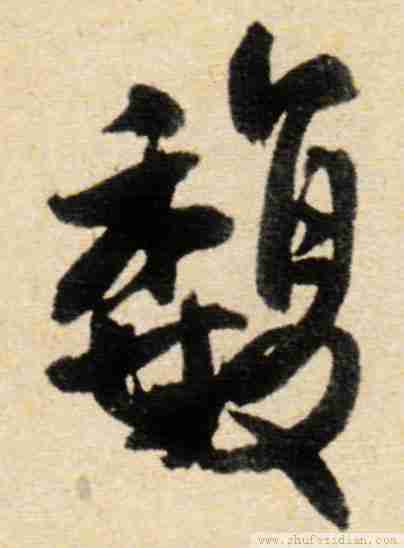 馥
www.shufazidian.com